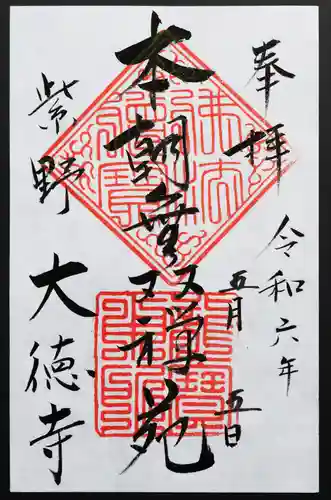 奉拝
令和六年
五月
五日
本朝無双禅苑
紫野
大徳寺